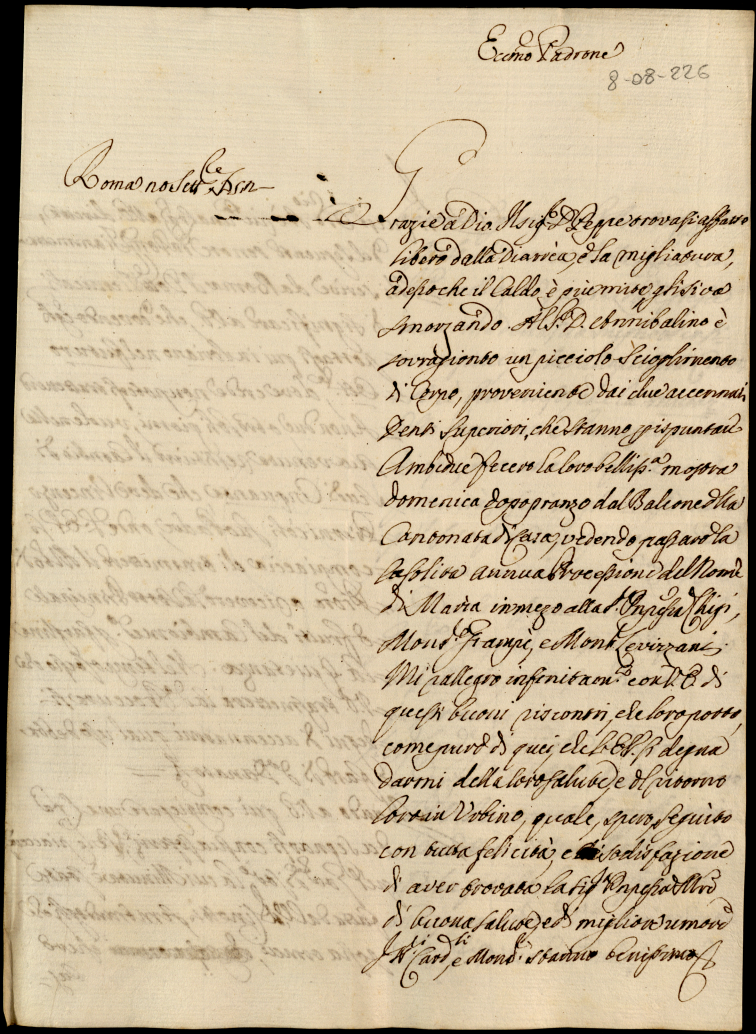 Eccmo Padrone
8-08-226
Roma
Grazie a Dio Il sigr. D. Peppe trovasi affatto
libero dalla Diarrèa, e la migliatura,
adesso che il Caldo è più mite gli si va
smorzando. Al Sr. D. Annibalino è
sovragionto un picciolo Scioglimento
di Corpo, proveniente dai due accennati
Denti Superiori, che stanno p ispuntare
Ambidue fecero la loro bellissa. mostra
domenica dopo pranzo dal Balcone della
Cantonata di Casa, vedendo passare la
solita annua Processione del Nome
di Maria in mezo alla Sra. Pnpessa Chigi,
Monsr. e Monsr. Levizzani
Mi rallegro infinitamte. con V.E. di
questi buoni riscontri, che loro porto,
come pure di quei, che l'EE.VV. si degna
darmi della loro salute, e del ritorno
loro in Urbino, quale, spero, seguìto
con tutta felicità, e sodisfazione
di aver trovata la Sigra. Pnpessa Mre
di buona salute, e di migliore umore
Card. e Monsre. stanno benissimo